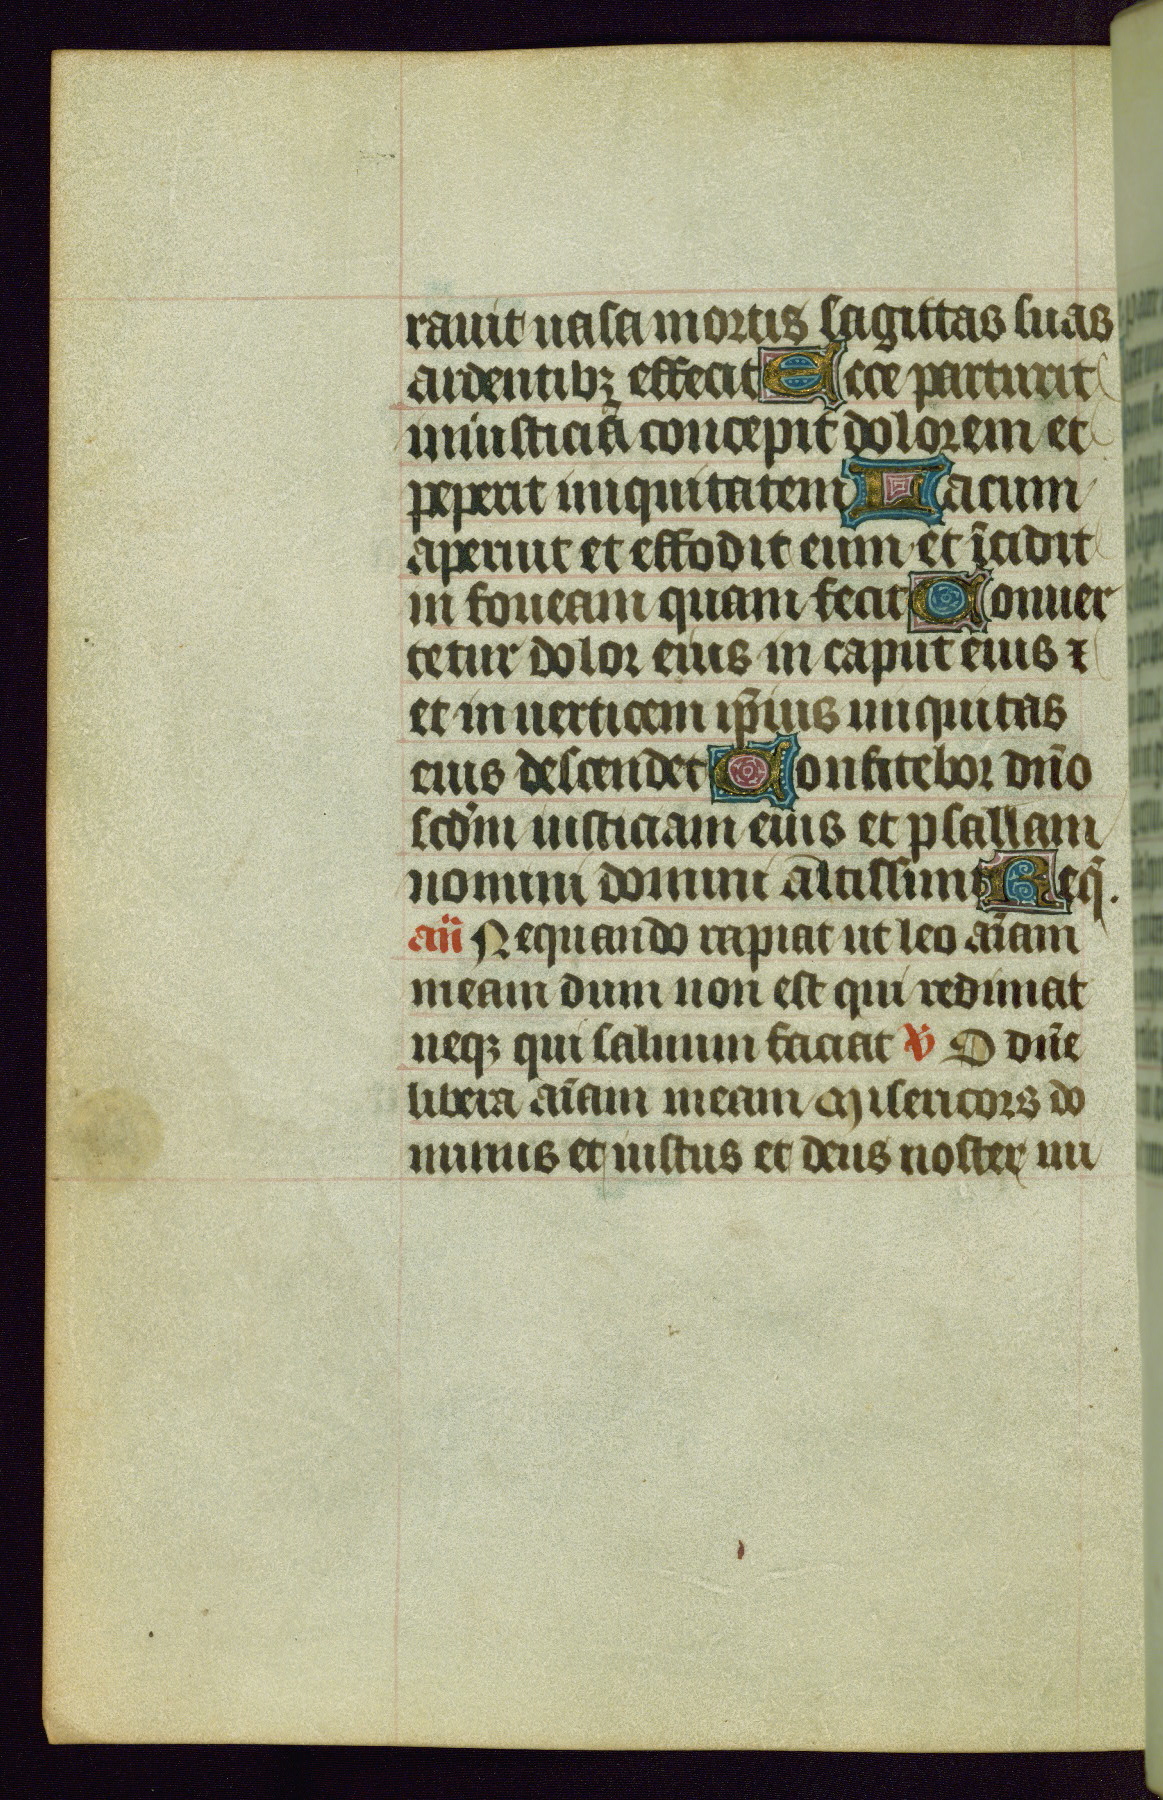 rauit uasa mortis sagittas suas
ardentibꝫ effecit Ecce parturit
iniusticiā concepit dolorem et
peperit iniquitatem Lacum
aperuit et effodit eum et īcidit
in foueam quam fecit Conuer
tetur dolor eius in caput eius ⁊
et in uerticem ip̄ius iniquitas
eius descendet Confitebor dn̄o
scd̄m iusticiam eius et psallam
nomini domini altissimi Req̄.
an̄ Nequando rapiat ut leo aīam
meam dum non est qui redimat
neqꝫ qui saluum faciat ꝟ O dn̄e
libera aīam meam Misericors do
minus et iustus et deus noster mi